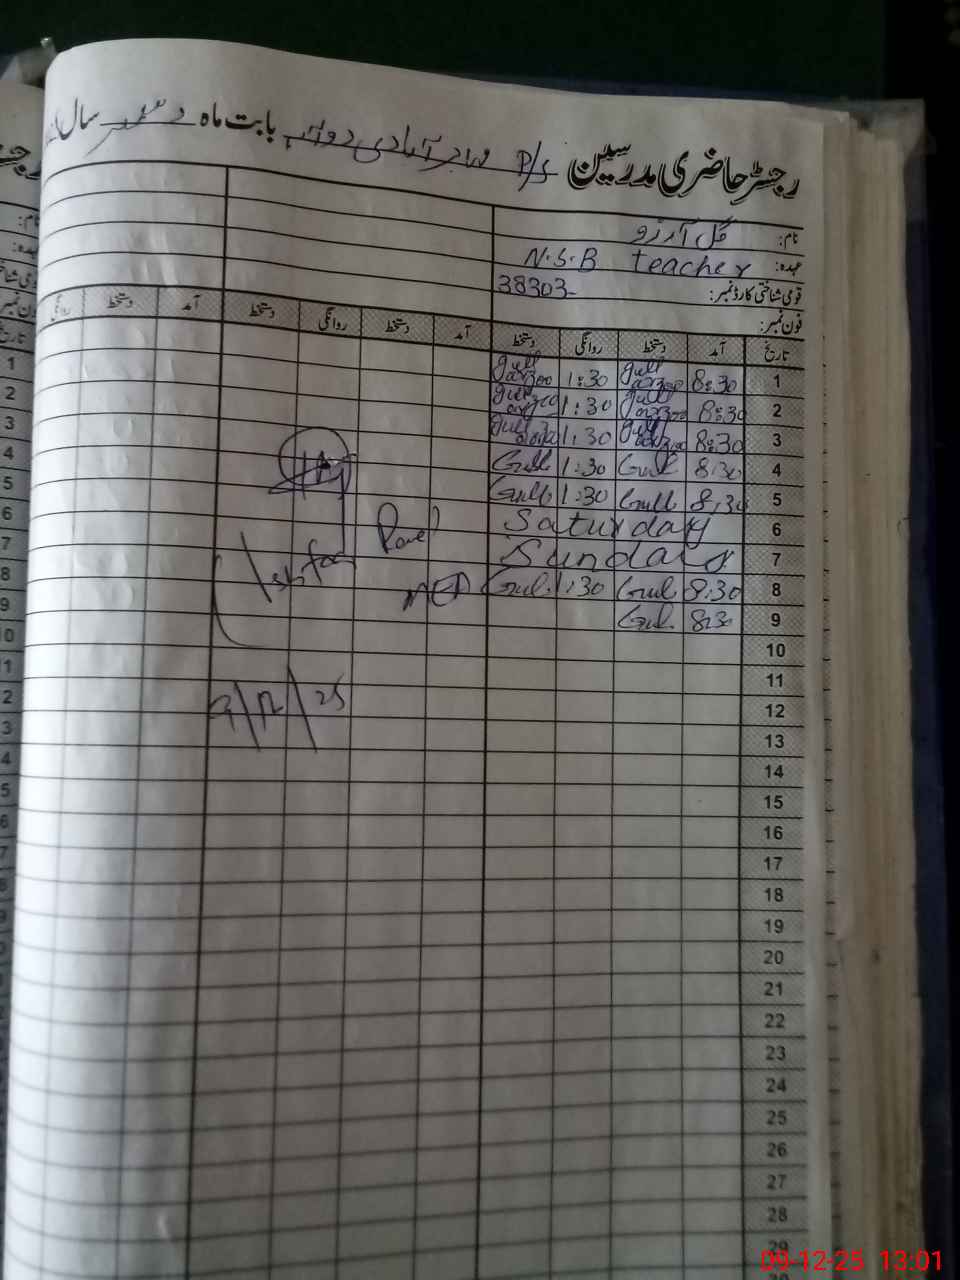 رجسٹر حاضری مدرسین P/S مہاجر آبادی دوآبہ بابت ماہ دسمبر سال
نام: گل آرزو
عہدہ: N.S.B teacher
قومی شناختی کارڈ نمبر: 38303-
فون نمبر:
تاریخ آمد دستخط روانگی دستخط آمد دستخط روانگی دستخط آمد دستخط روانگی
1 8:30 gull arzoo 1:30 gull arzoo
2 8:30 gull arzoo 1:30 gull arzoo
3 8:30 gull arzoo 1:30 gull arzoo
4 8:30 Gull 1:30 Gull
5 8:30 Gull 1:30 Gull
6 Saturday
7 Sunday
8 8:30 Gul. 1:30 Gul.
9 8:30 Gul.
10
11
12
13
14
15
16
17
18
19
20
21
22
23
24
25
26
27
28
29
9/12/25
09-12-25 13:01